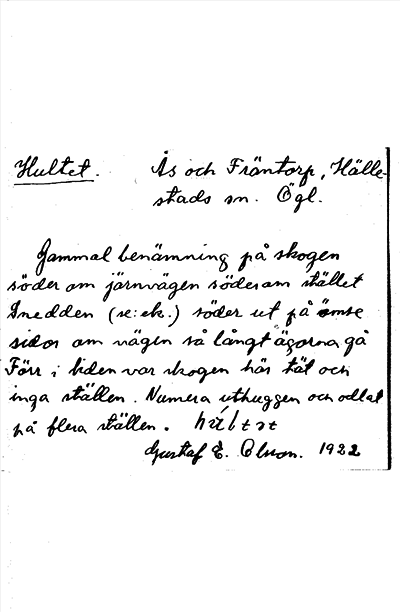 Hultet. Ås och Fräntorp, Hälle-
stads sn. Ögl.
Gammal benämning på skogen
söder om järnvägen söderom stället
Snedden (se: ek.) söder ut på ömse
sidor om vägen så långt ägorna gå
Förr i tiden var skogen här tät och
inga ställen. Numera uthuggen och odlat
på flera ställen.
Gustaf E. Olson. 1922